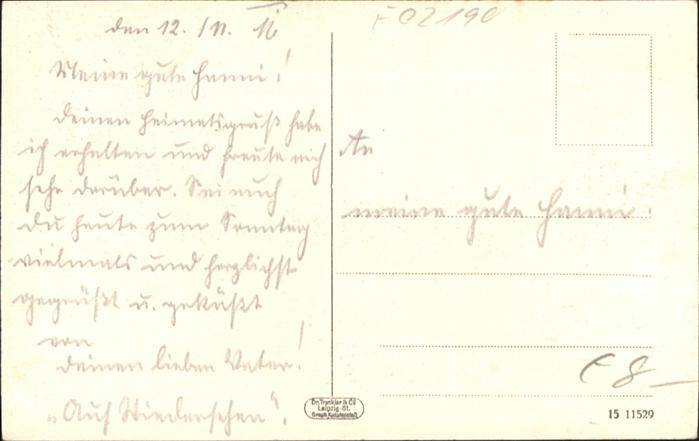 den 12./11. 16
Meine gute Hanni!
Deinen Heimatsgruß habe
ich erhalten und freute mich
sehr darüber. Sei auch
Du heute zum Sonntag
vielmals und herzlichst
gegrüßt u. geküßt
von
Deinen lieben Vater!
„Auf Wiedersehen".
F02190
An
meine gute Hanni.
€ 8 –
Dr. Trenkler & Co
Leipzig-St.
Graph. Kunstanstalt
15 11529